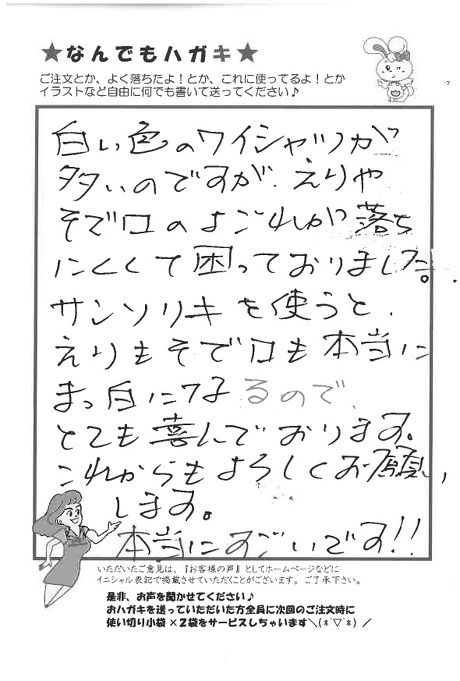 ★なんでもハガキ★
ご注文とか、よく落ちたよ！とか、これに使ってるよ！とか
イラストなど自由に何でも書いて送ってください♪
白い色のワイシャツが
多いのですが、えりや
そで口のよごれが落ち
にくくて困っておりました。
サンソリキを使うと、
えりもそで口も本当に
まっ白になるので、
とても喜んでおります。
これからもよろしくお願い
します。
本当にすごいです!!
いただいたご意見は、『お客様の声』としてホームページなどに
イニシャル表記で掲載させていただくことがございます。ご了承下さい。
是非、お声を聞かせてください♪
おハガキを送っていただいた方全員に次回のご注文時に
使い切り小袋×2袋をサービスしちゃいます＼(*ﾟ▽ﾟ*) ／